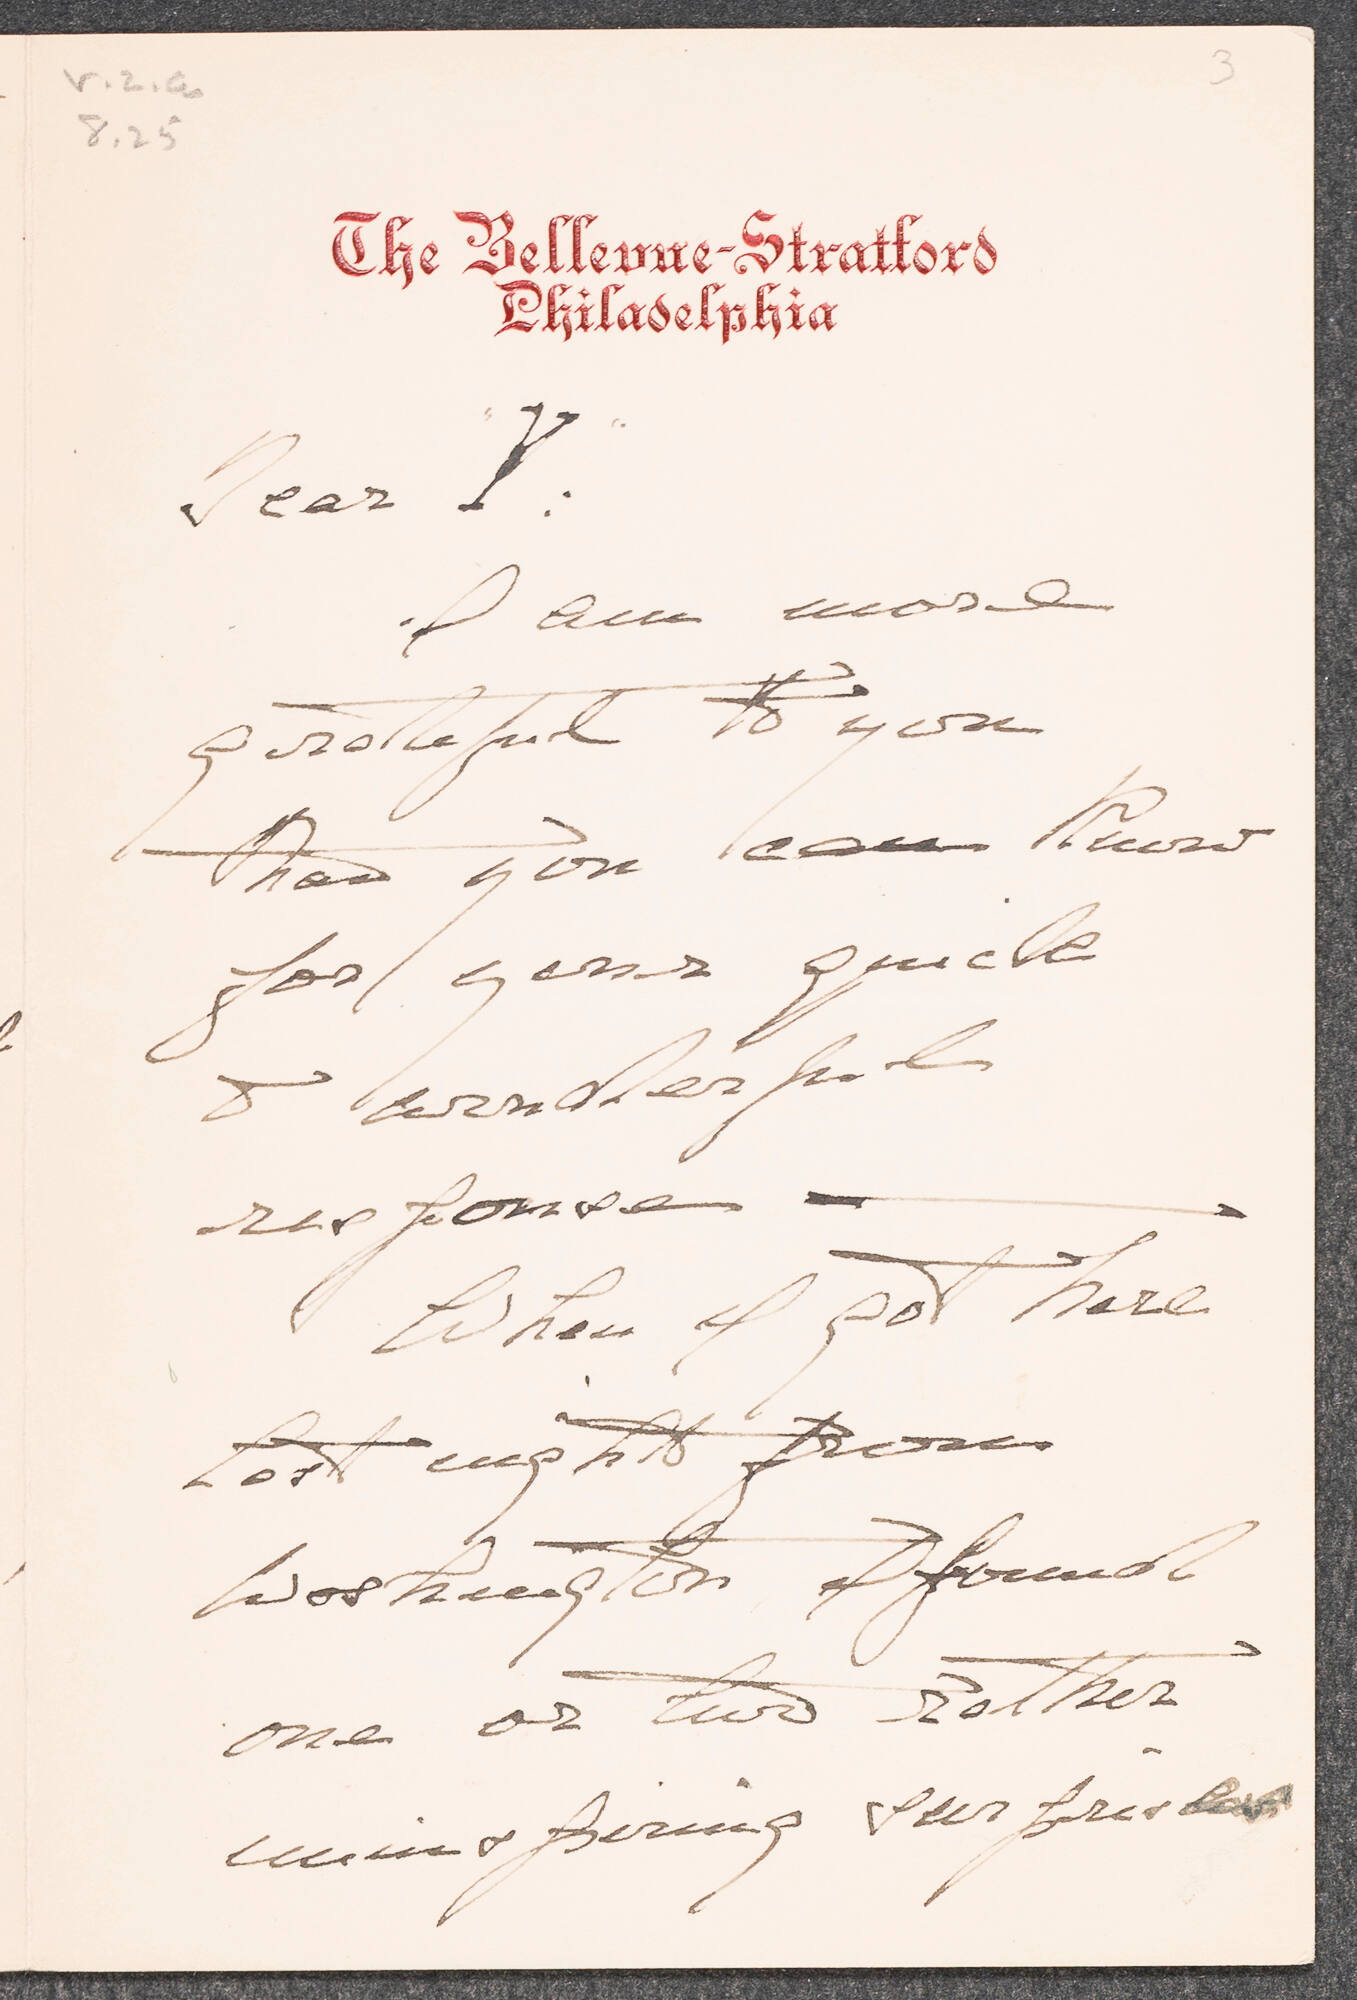 v.2.a
8.25
3
The Bellevue-Stratford
Philadelphia
Dear "V":
I am more
grateful to you
than you can know
for your quick
& wonderful
response —
When I got here
last night from
Washington I found
one or two rather
uninspiring surprises